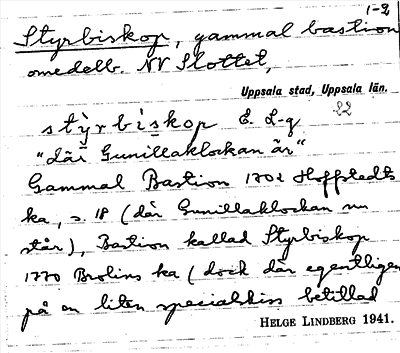 1-2
Styrbiskop, gammal bastion
omedelb. NV Slottet,
Uppsala stad, Uppsala län.
22
styrbiskop E. L-g
"där Gunillaklockan är"
Gammal Bastion 1702 Hoffstedts
ka, s. 18 (där Gunillaklockan nu
står), Bastion kallad Styrbiskop
1770 Brolins ka (dock där egentligen
på en liten specialskiss betitlad
HELGE LINDBERG 1941.